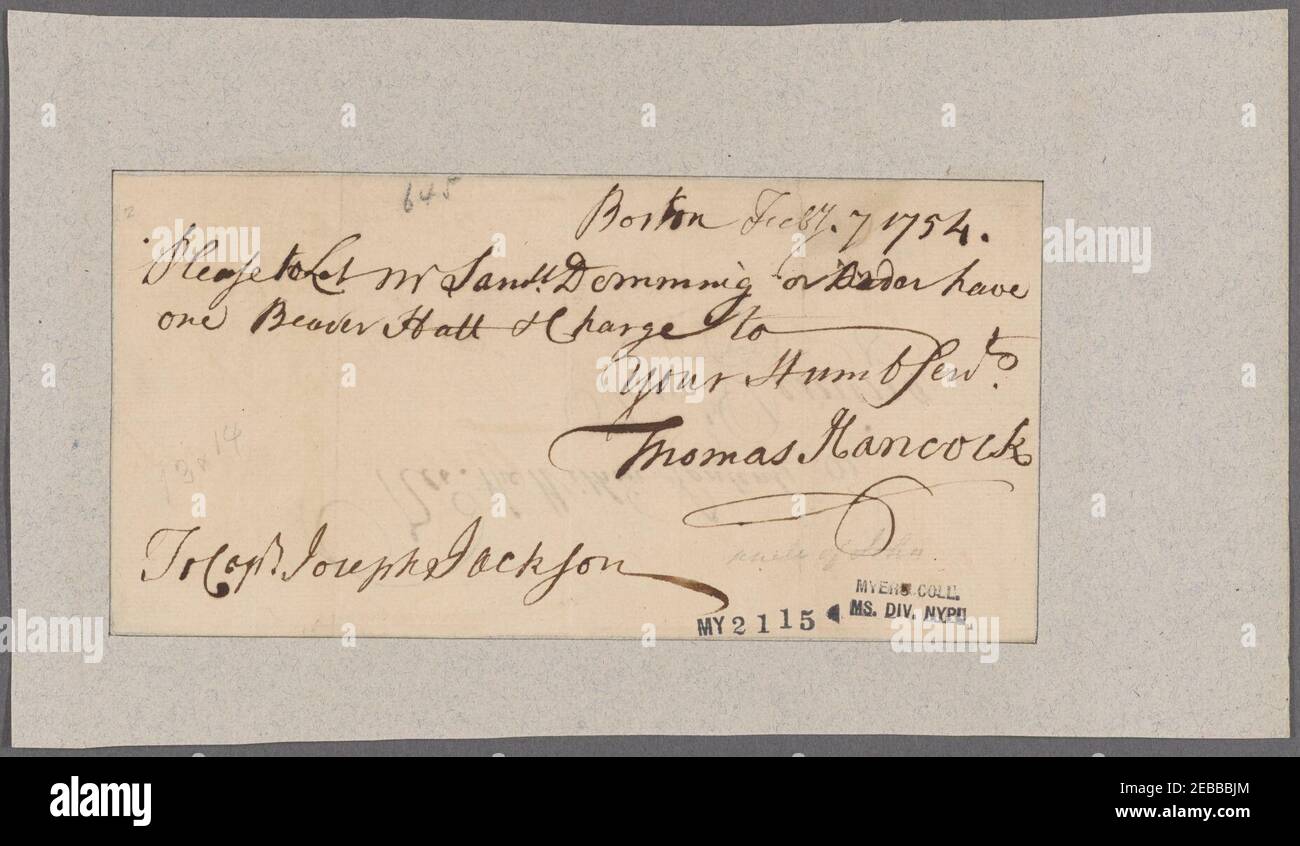 645
Boston Feby. 7 1754.
Please to Let Mr Saml. Demming or order have
one Beaver Hatt & Charge to
Your Humb Servt.
Thomas Hancock
To Capt. Joseph Jackson
uncle of John
MYERS COLL.
MS. DIV. NYPL.
MY 2115
alamy
Image ID: 2EBBBJM
www.alamy.com